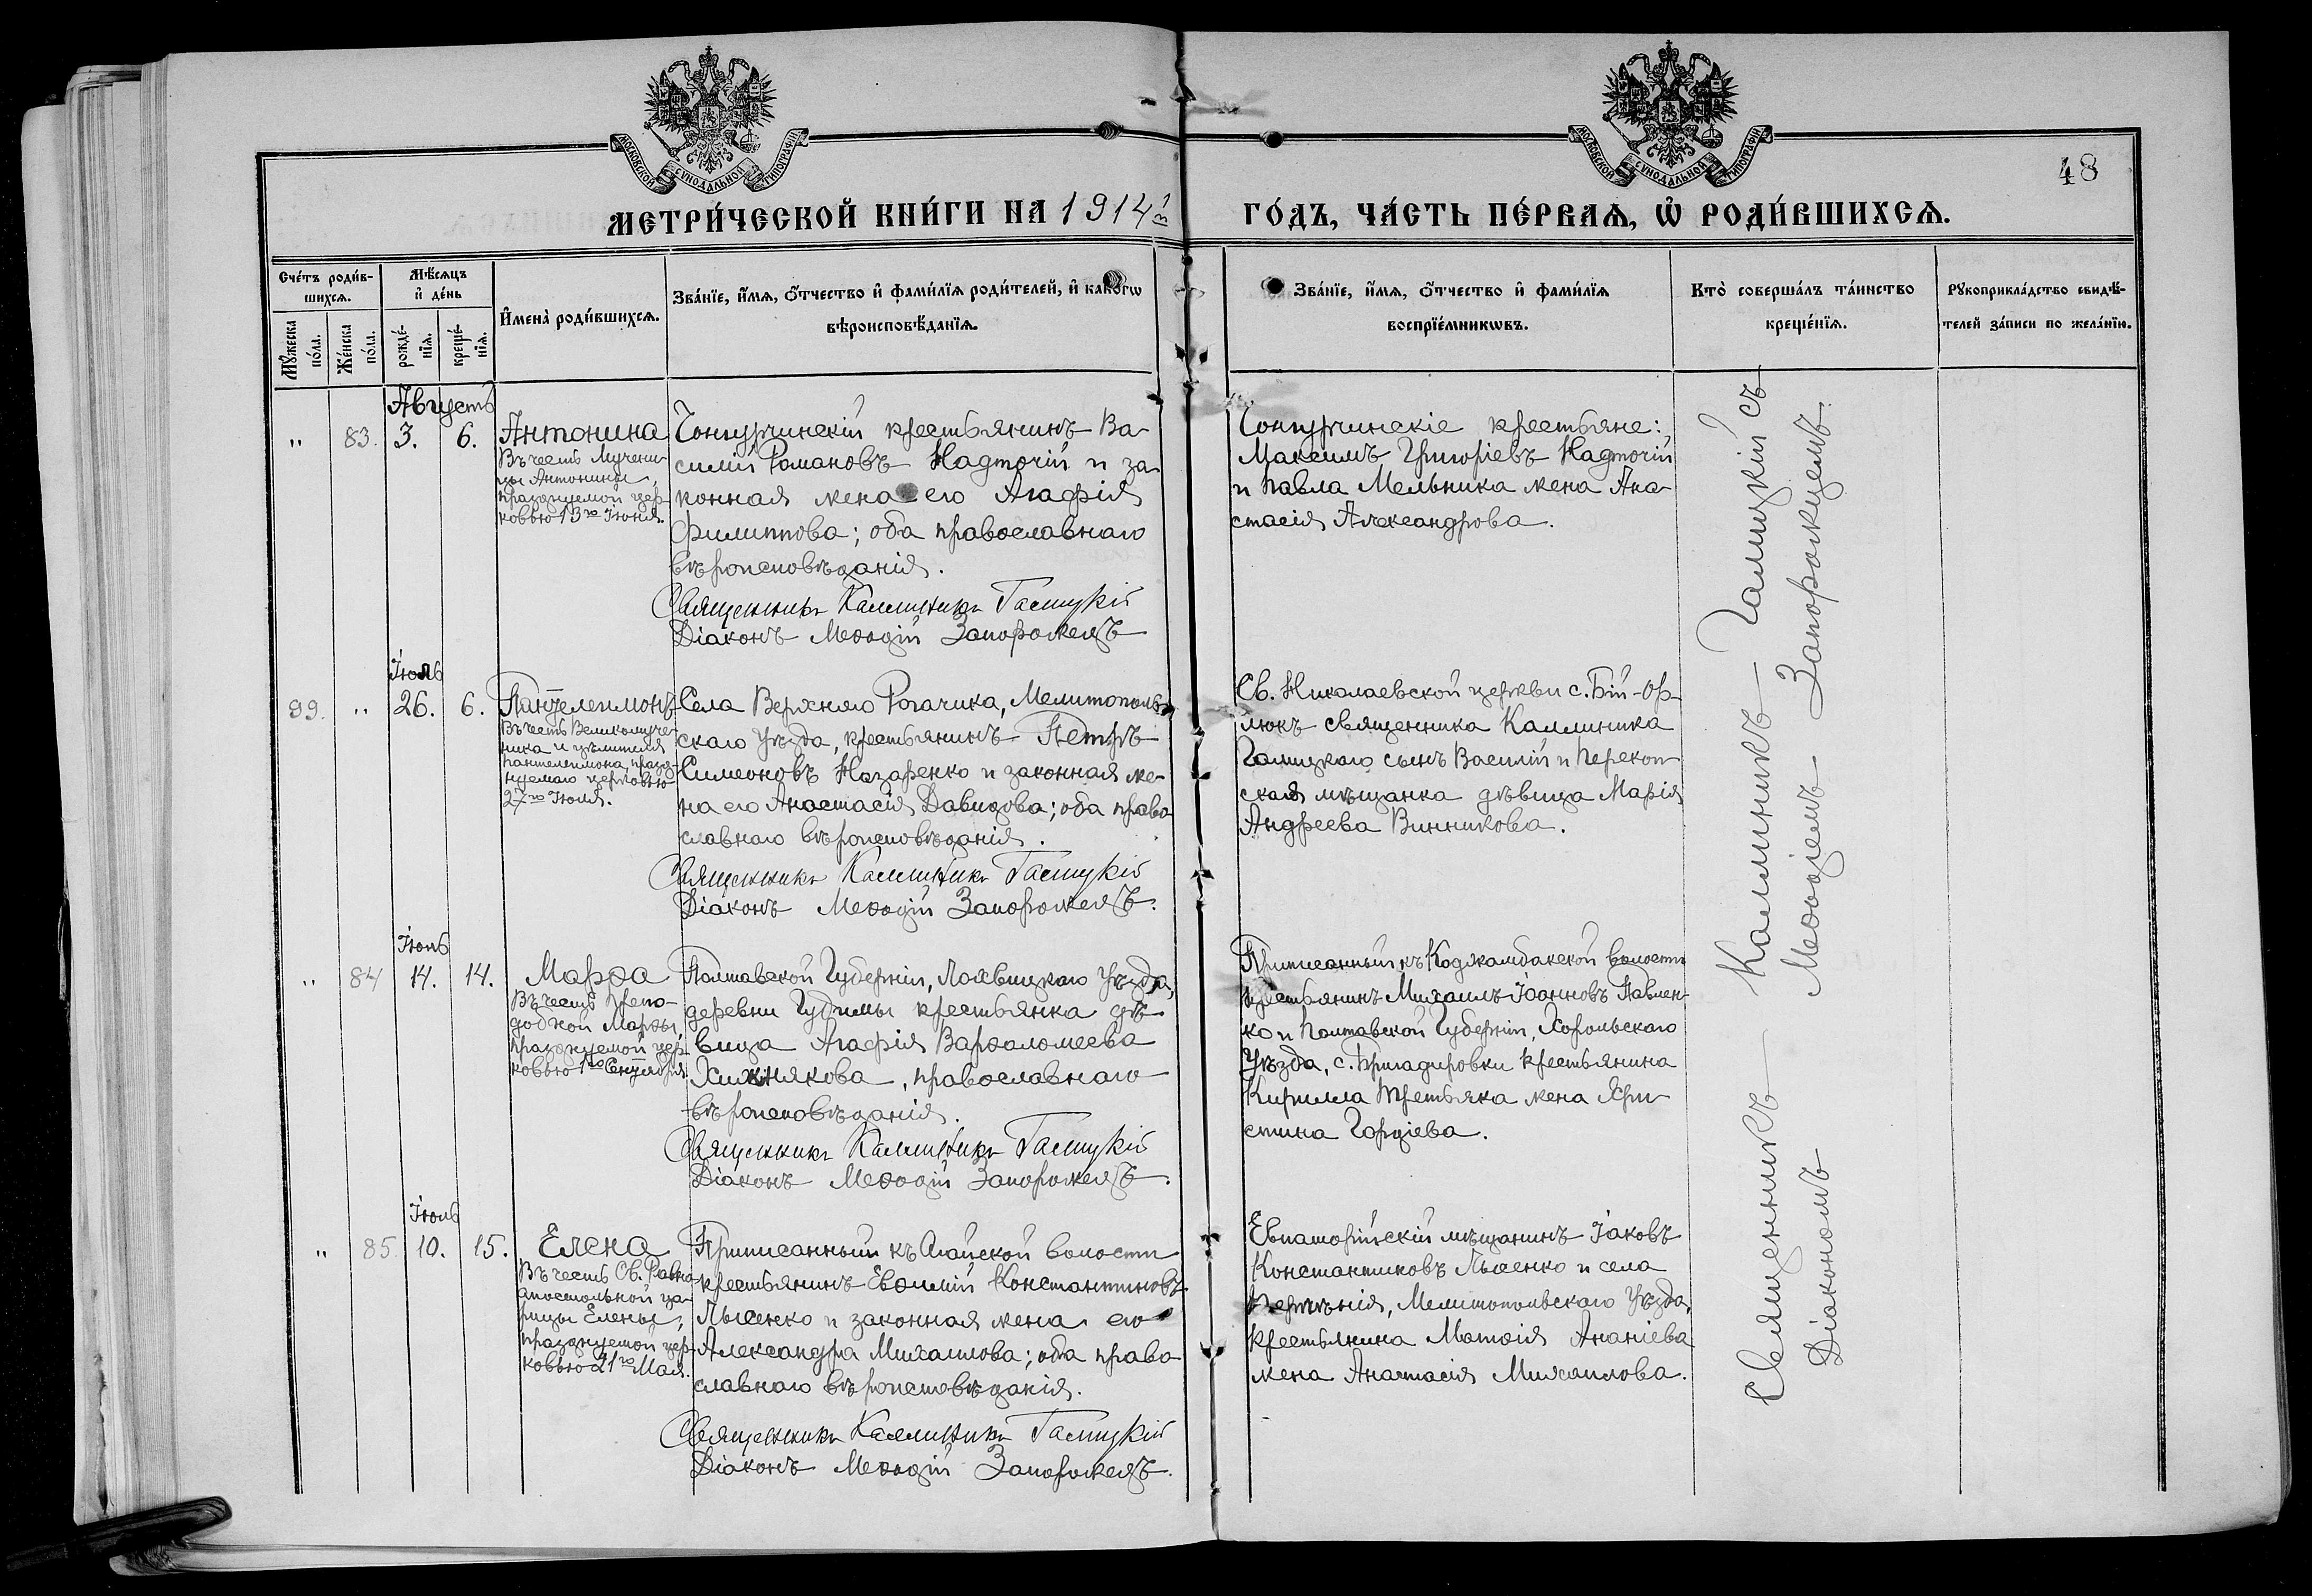 МОСКОВСКОЙ СѴНОДАЛЬНОЙ ТИПОГРАФІИ
МОСКОВСКОЙ СѴНОДАЛЬНОЙ ТИПОГРАФІИ
48
МЕТРИ́ЧЕСКОЙ КНИ́ГИ НА 1914й
ГО́ДЪ, ЧА́СТЬ ПЕ́РВАѦ, Ѡ҆ РОДИ́ВШИХСѦ.
Сче́тъ роди́в-
шихсѧ.
Мꙋ́жеска по́ла.
Же́нска по́ла.
Мѣ́сѧцъ
и҆ де́нь
рожде́-
нїѧ.
креще́-
нїѧ.
И҆мена̀ роди́вшихсѧ.
Зва́нїе, и҆́мѧ, ѻ҆́тчество и҆ фами́лїѧ роди́телей, и҆ како́гѡ
вѣроисповѣ́данїѧ.
Зва́нїе, и҆́мѧ, ѻ҆́тчество и҆ фами́лїѧ
воспрїе́мникѡвъ.
Кто̀ соверша́лъ та́инство
креще́нїѧ.
Рꙋкоприкла́дство свидѣ́-
телей за́писи по жела́нїю.
Августъ
„ 83. 3. 6.
Антонина
Въ честь Мучени-
цы Антонины,
празднуемой цер-
ковью 13го Іюня.
Чонгурчинскій крестьянинъ Ва-
силій Романовъ Надточій и за-
конная жена его Агафія
Филиппова; оба православнаго
вѣроисповѣданія.
Священникъ Каллиникъ Галицкій
Діаконъ Меѳодій Запорожецъ
Чонгурчинскіе крестьяне:
Максимъ Григоріевъ Надточій
и Павла Мельника жена Ана-
стасія Александрова.
Іюль
99. „ 26. 6.
Пантелеимонъ
Въ честь Великомуче-
ника и цѣлителя
Пантелеимона, празд-
нуемаго церковью
27го Іюля.
Села Верхняго Рогачика, Мелитополь-
скаго уѣзда, крестьянинъ Петръ
Симеоновъ Назаренко и законная же-
на его Анастасія Давидова; оба право-
славнаго вѣроисповѣданія.
Священникъ Каллиникъ Галицкій
Діаконъ Меѳодій Запорожецъ.
Св. Николаевской церкви с. Бій-Ор-
люкъ священника Каллиника
Галицкаго сынъ Василій и Перекоп-
ская мѣщанка дѣвица Марія
Андреева Винникова.
Іюль
„ 84 14. 14.
Марѳа
Въ честь Препо-
добной Марѳы,
празднуемой цер-
ковью 1го Сентября.
Полтавской Губерніи, Лохвицкаго Уѣзда,
деревни Гудимы крестьянка дѣ-
вица Агафія Варѳоломеева
Хижнякова, православнаго
вѣроисповѣданія.
Священникъ Каллиникъ Галицкій
Діаконъ Меѳодій Запорожецъ.
Приписанный къ Коджамбакской волости
крестьянинъ Михаилъ Іоанновъ Павлен-
ко и Полтавской Губерніи, Хорольскаго
Уѣзда, с. Бригадировки крестьянина
Кирилла Третьяка жена Хри-
стина Гордіева.
Іюль
„ 85. 10. 15.
Елена
Въ честь Св. Равно-
апостольной ца-
рицы Елены,
празднуемой цер-
ковью 21го Мая.
Приписанный къ Агайской волости
крестьянинъ Евѳимій Константиновъ
Лысенко и законная жена его
Александра Михаилова; оба право-
славнаго вѣроисповѣданія.
Священникъ Каллиникъ Галицкій
Діаконъ Меѳодій Запорожецъ.
Евпаторійскій мѣщанинъ Іаковъ
Константиновъ Лысенко и села
Мелитопольскаго Уѣзда,
крестьянина Матѳія Ананіева
жена Анастасія Михаилова.
Священникъ Каллиникъ Галицкій съ
Діакономъ Меѳодіемъ Запорожцемъ.